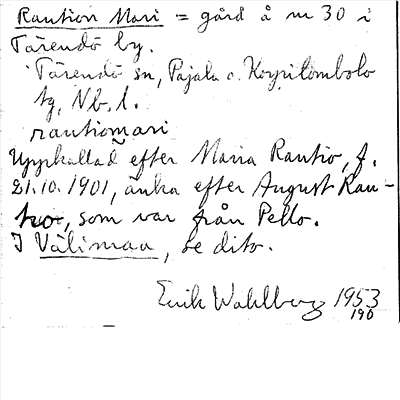 Raution Mari = gård å nr 30 i
Tärendö by.
Tärendö sn, Pajala o. Korpilombolo
tg, Nb. l.
rautiom̃ari
Uppkallad efter Maria Rautio, f.
21.10. 1901, änka efter August Rau-
tio, som var från Pello.
I Välimaa, se dito.
Erik Wahlberg 1953
190